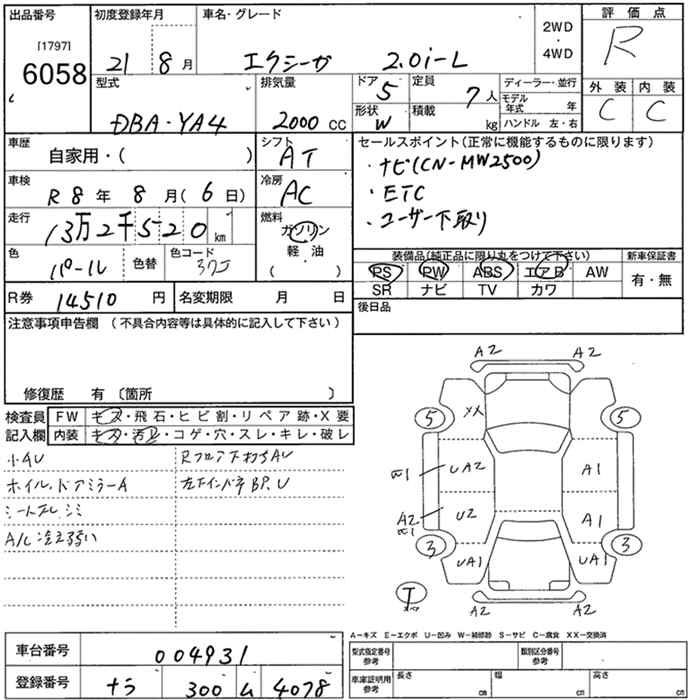 出品番号 初度登録年月 車名・グレード 評価点
[1797]
6058
21 8月 エクシーガ 2.0i-L 2WD・4WD R
型式 排気量 ドア 5 定員 7人 ディーラー・並行 外装 内装
DBA・YA4 2000 CC 形状 W 積載 kg モデル年式 年 C C
ハンドル 左・右
車歴 自家用・( ) シフト AT セールスポイント(正常に機能するものに限ります)
・ナビ(CN-MW2500)
車検 R8年 8月(6日) 冷房 AC ・ETC
走行 13万2千520km 燃料 ガソリン ・ユーザー下取り
軽油
( )
色 パール 色替 色コード 37J 装備品(純正品に限り丸をつけて下さい) 新車保証書
PS PW ABS エアB AW 有・無
SR ナビ TV カワ
R券 14510円 名変期限 月 日 後日品
注意事項申告欄(不具合内容等は具体的に記入して下さい)
修復歴 有〔箇所 〕
検査員 FW キズ・飛石・ヒビ割・リペア跡・X要
記入欄 内装 キズ・汚レ・コゲ・穴・スレ・キレ・破レ
小AU
ホイル、ドアミラーA
シートスレ シミ
A/C 冷え弱い
A2 A2
5 5
UA2 A1
A2 U2 A1
3 3
UA1 UA1
T
A2 A2
A−キズ E−エクボ U−凹み W−補修跡 S−サビ C−腐食 XX−交換済
車台番号 004931 型式指定番号 参考 類別区分番号 参考
登録番号 ナラ 300 ム 4078 車庫証明用 参考 長さ cm 幅 cm 高さ cm